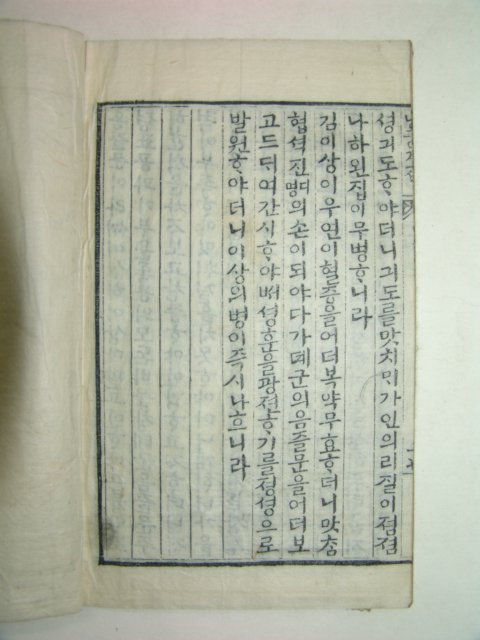 셩긔도ᄒᆞ야더니긔도를맛치ᄆᆡ가인의리질이졈졈
나하왼집이무병ᄒᆞ니라
김이상이우연이혈증을어더복약무효ᄒᆞ더니맛ᄎᆞᆷ
협셕진明의손이되야다가뎨군의음즐문을어더보
고드듸여간시ᄒᆞ야ᄇᆡ셩훈을광젼ᄒᆞ기를졍셩으로
발원ᄒᆞ야더니이상의병이즉시나흐니라